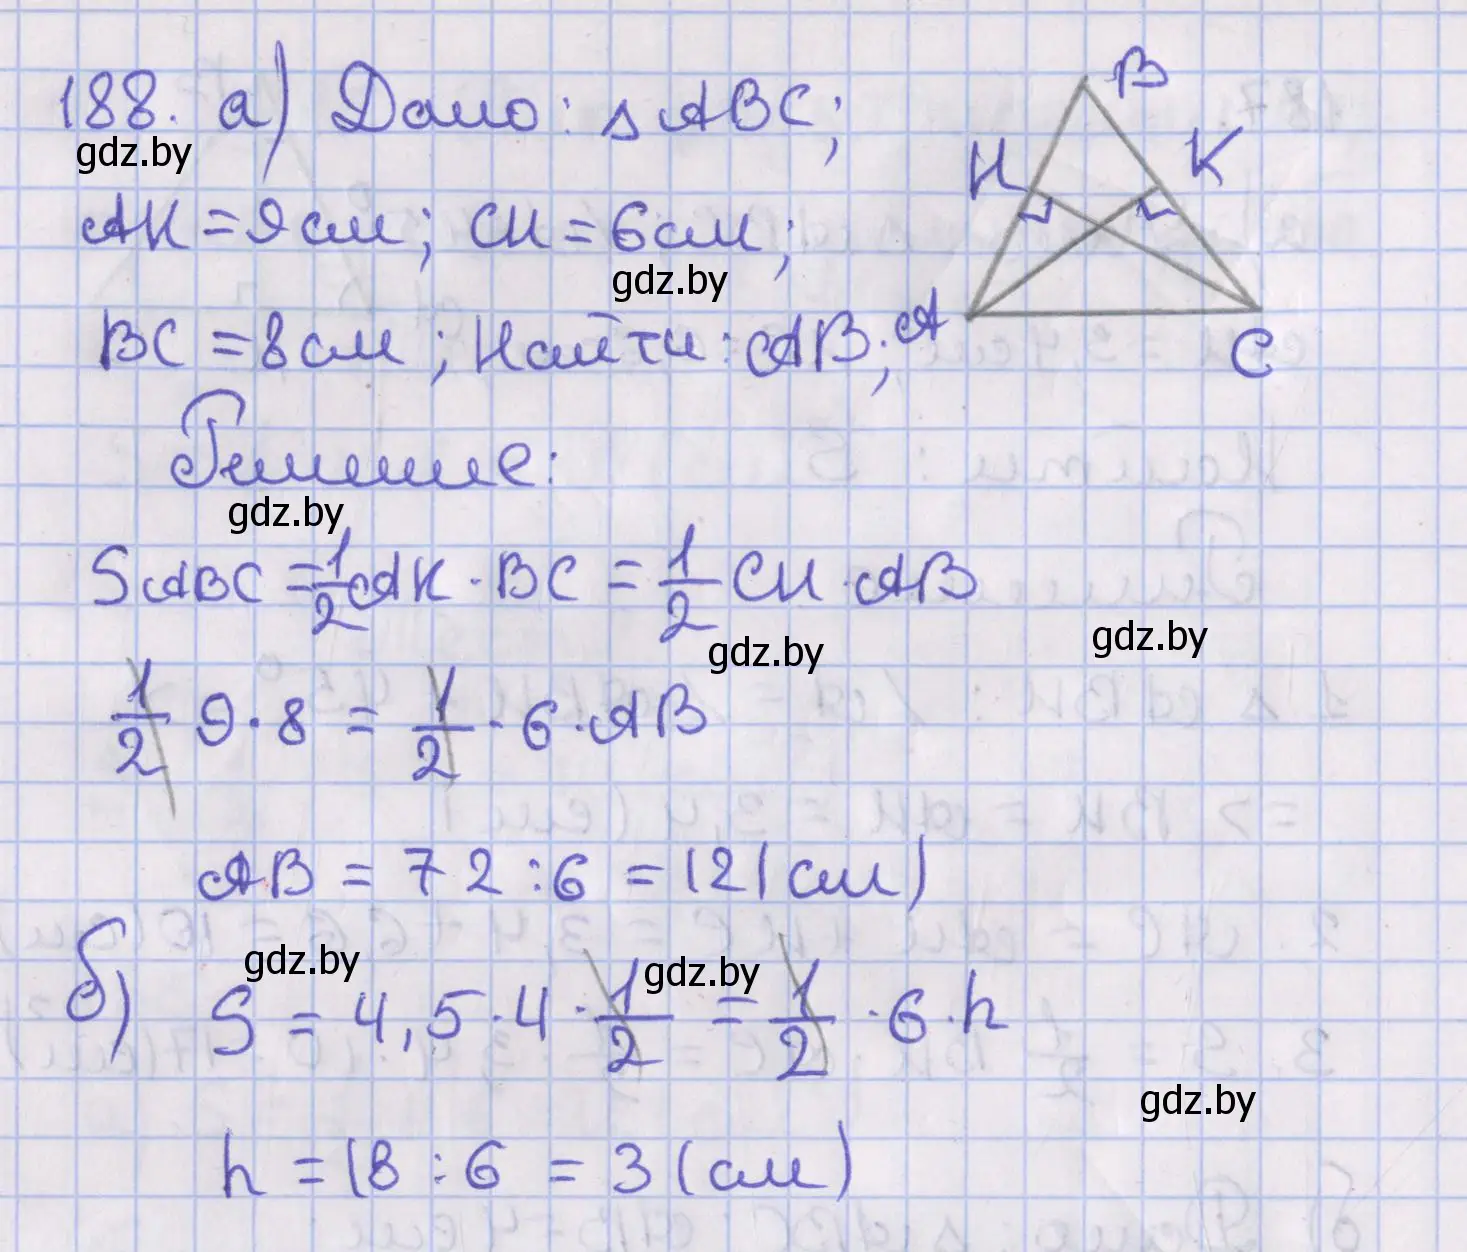 188. а) Дано: △ABC;
gdz.by
AK = 9 см; CH = 6 см;
gdz.by
BC = 8 см; Найти: AB;
B
H
K
A
C
Решение:
gdz.by
SABC = 1/2 AK · BC = 1/2 CH · AB
gdz.by
gdz.by
1/2 9 · 8 = 1/2 · 6 · AB
AB = 72 : 6 = 12 (см)
gdz.by
gdz.by
б) S = 4,5 · 4 · 1/2 = 1/2 · 6 · h
gdz.by
h = 18 : 6 = 3 (см)